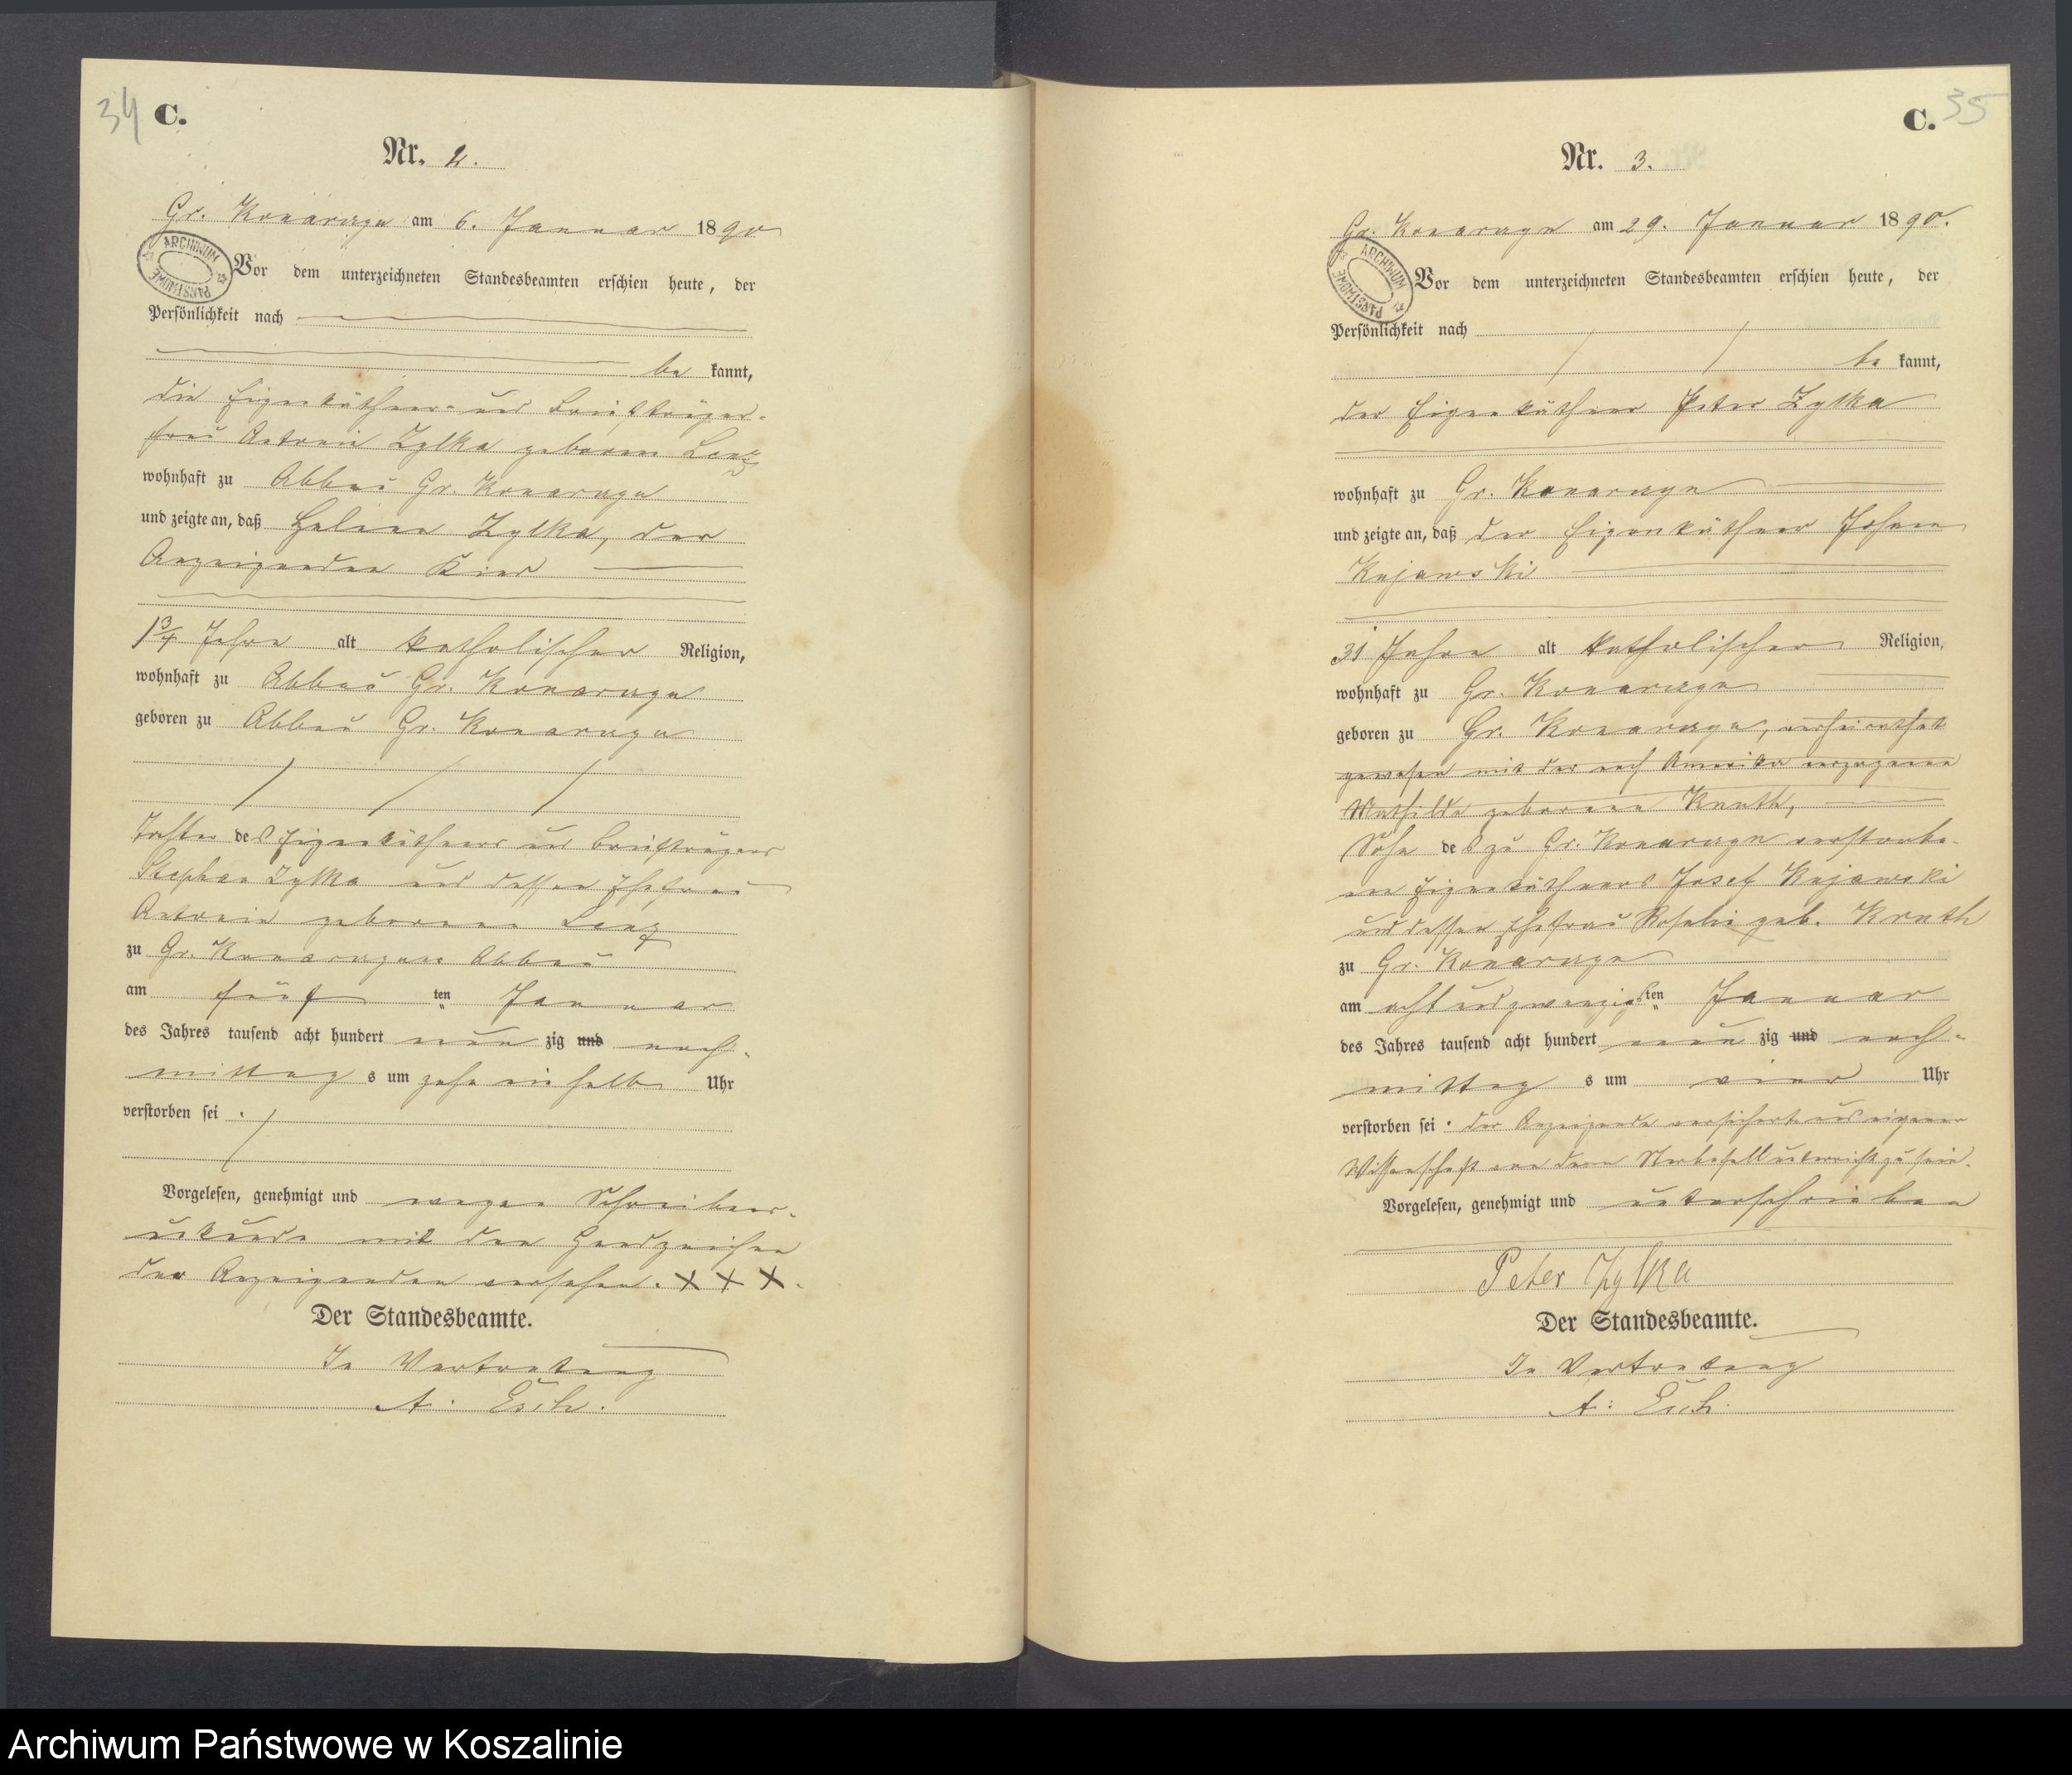 34 C.
Nr. 2.
Gr. Konarczyn am 6. Januar 1890
ARCHIWUM PAŃSTWOWE
Vor dem unterzeichneten Standesbeamten erschien heute, der
Persönlichkeit nach
be kannt,
die Eigenkäthner- und Briefträger-
frau Antonie Zylka geborene Lenz
wohnhaft zu Abbau Gr. Konarczyn
und zeigte an, daß Helene Zylka, der
Anzeigenden Kind
1 3/4 Jahre alt katholischer Religion,
wohnhaft zu Abbau Gr. Konarczyn
geboren zu Abbau Gr. Konarczyn
Tochter des Eigenkäthners und Briefträgers
Stephan Zylka und dessen Ehefrau
Antonie geborene Lenz
zu Gr. Konarczyn Abbau
am fünf ten Januar
des Jahres tausend acht hundert neun zig und nach-
mittag s um zehn ein halb Uhr
verstorben sei.
Vorgelesen, genehmigt und wegen Schreibens-
unkunde mit den Handzeichen
der Anzeigenden versehen. X X X.
Der Standesbeamte.
In Vertretung
A. Esch.
C. 35
Nr. 3.
Gr. Konarczyn am 29. Januar 1890.
ARCHIWUM PAŃSTWOWE
Vor dem unterzeichneten Standesbeamten erschien heute, der
Persönlichkeit nach
be kannt,
der Eigenkäthner Peter Zylka
wohnhaft zu Gr. Konarczyn
und zeigte an, daß der Eigenkäthner Johann
Kujawski
31 Jahre alt katholischer Religion,
wohnhaft zu Gr. Konarczyn
geboren zu Gr. Konarczyn, verheirathet
gewesen mit der nach Amerika verzogenen
Mathilde geborenen Knuth,
Sohn des zu Gr. Konarczyn verstorbe-
nen Eigenkäthners Josef Kujawski
und dessen Ehefrau Rosalie geb. Knuth
zu Gr. Konarczyn
am acht und zwanzigsten Januar
des Jahres tausend acht hundert neun zig und nach-
mittag s um vier Uhr
verstorben sei. der Anzeigende versicherte aus eigener
Wissenschaft von dem Sterbefall unterrichtet zu sein.
Vorgelesen, genehmigt und unterschrieben
Peter Zylka
Der Standesbeamte.
In Vertretung
A. Esch.
Archiwum Państwowe w Koszalinie